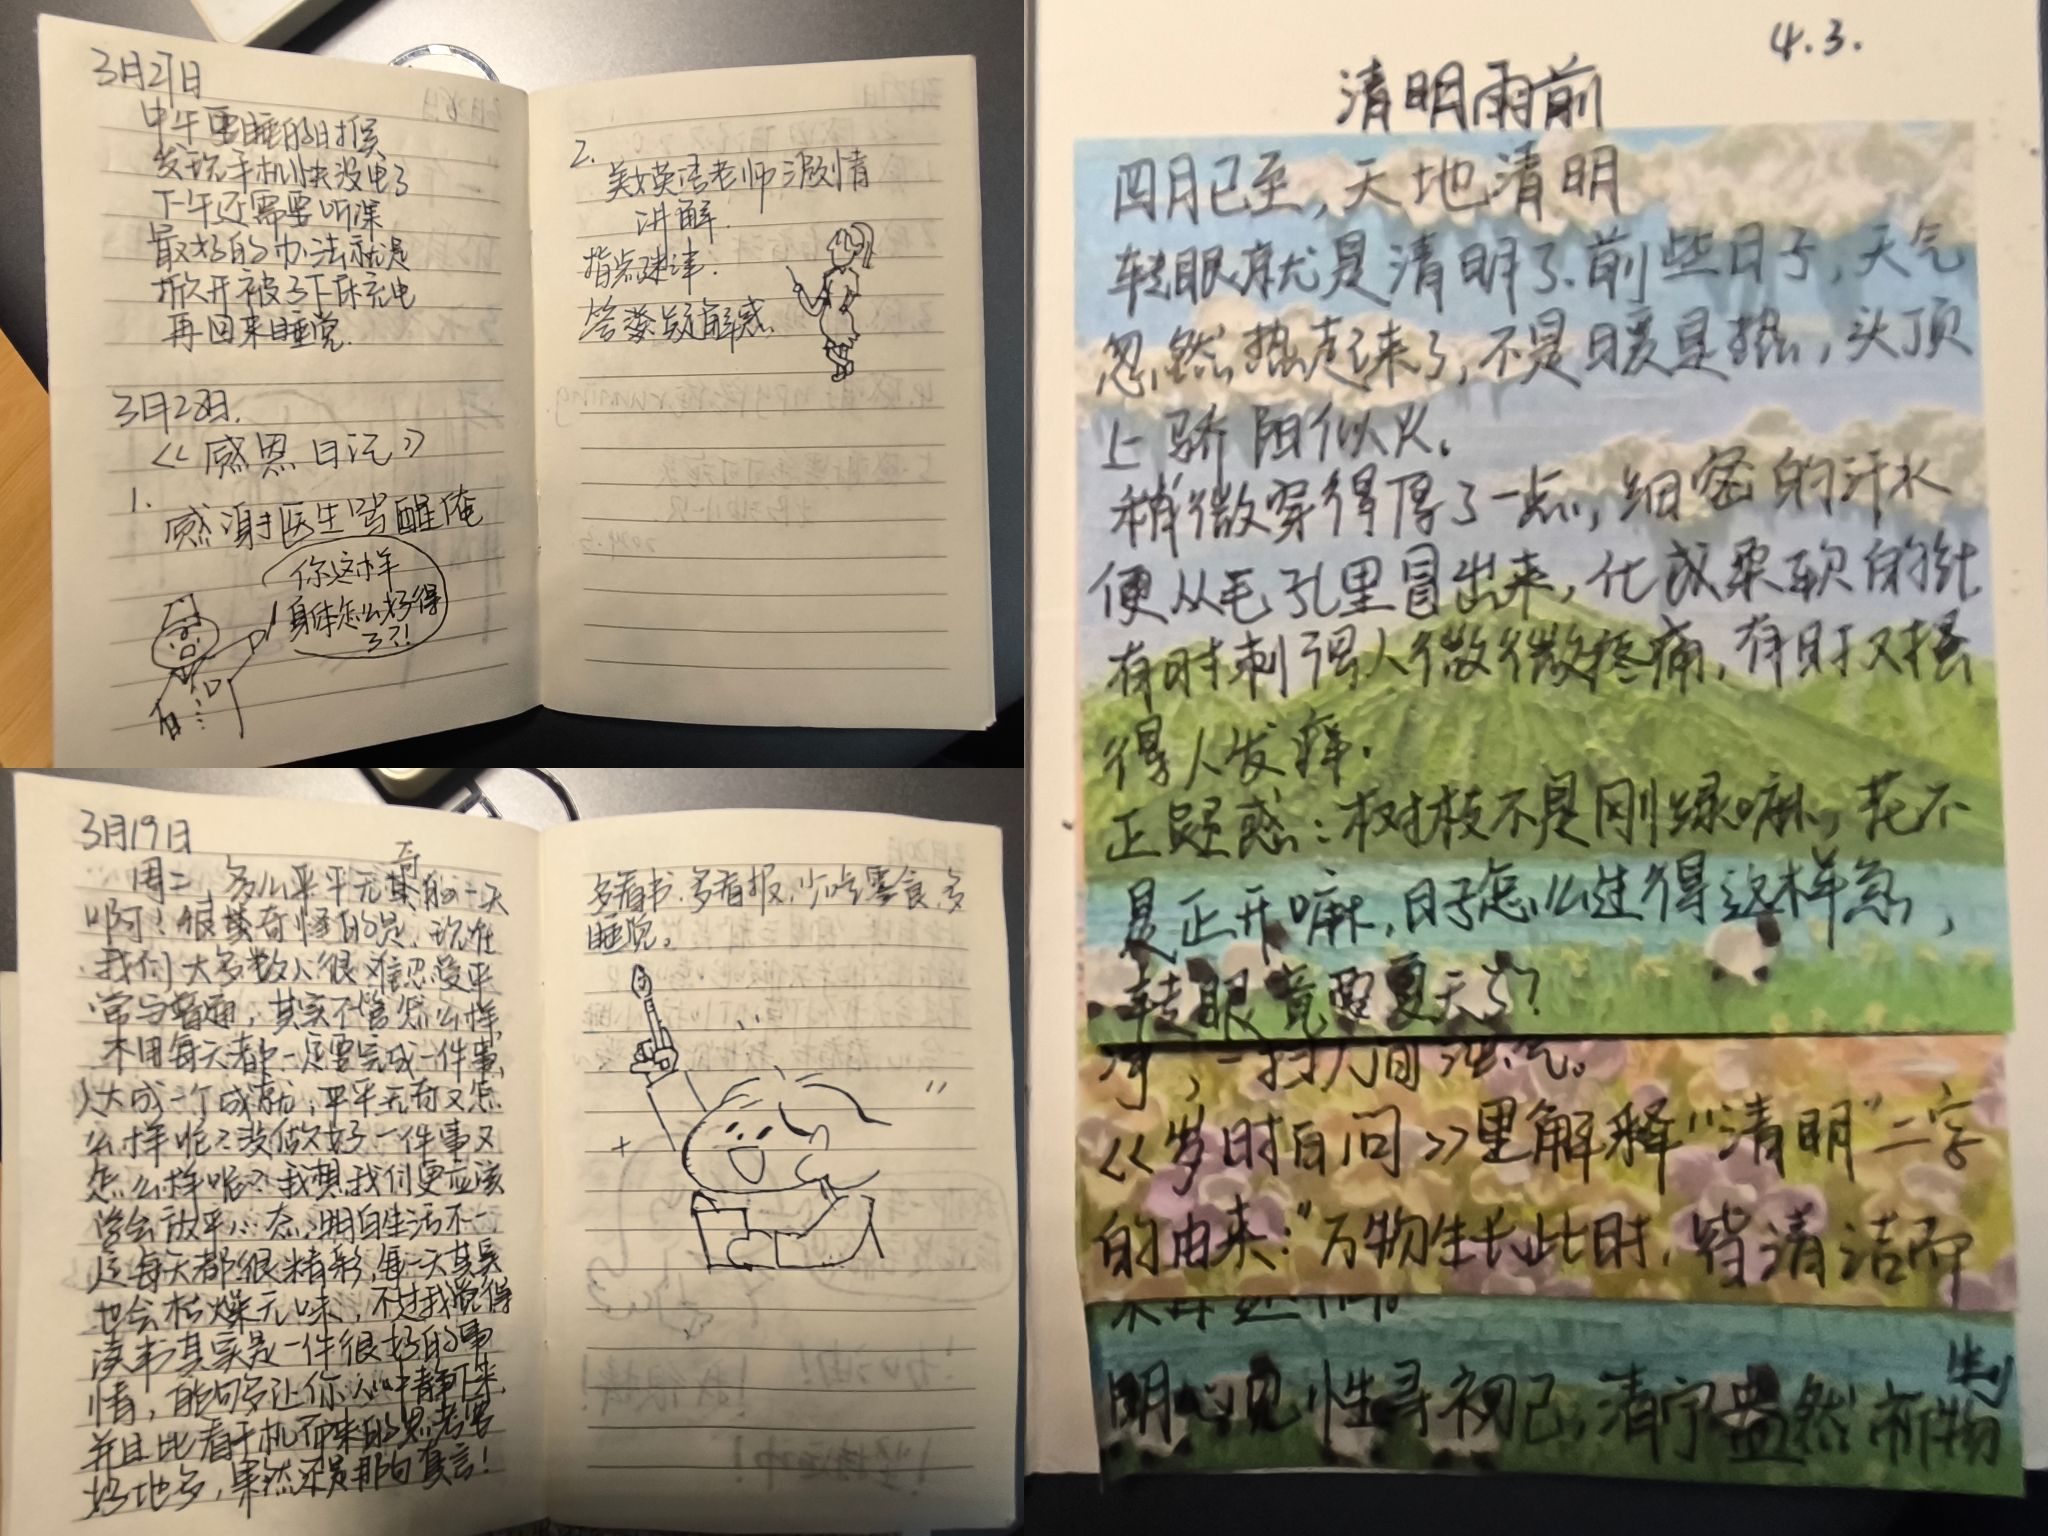 3月27日
中午要睡的时候
发现手机快没电了
下午还需要听课
最好的办法就是
掀开被子下床充电
再回来睡觉.
3月28日.
《感恩日记》
1.
感谢医生骂醒俺
你这样
身体怎么好得
了?!
2.
美女英语老师激情
讲解.
指点迷津.
答疑解惑.
3月19日
周二,多么平平无奇的一天
啊!很奇怪的是,现在
我们大多数人很难忍受平
常与普通,其实不管怎么样,
不用每天都一定要完成一件事,
达成一个成就,平平无奇又怎
么样呢?没做好一件事又
怎么样呢?我想我们更应该
学会放平心态,明白生活不一
定每天都很精彩,每一天其实
也会枯燥无味,不过我觉得
读书其实是一件很好的事
情,能够多让你从中静下来,
并且比看手机带来的思考要
好地多,果然还是那句真言!
多看书.多看报,少吃零食.多
睡觉。
4.3.
清明雨前
四月已至,天地清明
转眼就是清明了.前些日子,天气
忽然热起来了,不是暖是热,头顶
上骄阳似火。
稍微穿得厚了一点,细密的汗水
便从毛孔里冒出来,化成柔软的针
有时刺得人微微疼痛,有时又搔
得人发痒.
正疑惑:树枝不是刚绿嘛,花不
是正开嘛,日子怎么过得这样急,
转眼竟要夏天了?
,一扫人间浊气。
《岁时百问》里解释“清明”二字
的由来:“万物生长此时,皆清洁而
明心见性寻初己,清宁盎然祈物